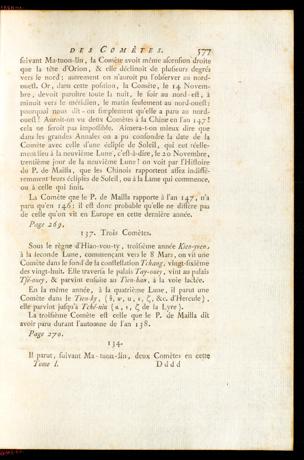 DES COMÈTES. 577
suivant Ma-tuon-lin, la Comète avoit même ascension droite
que la tête d'Orion, & elle déclinoit de plusieurs degrés
vers le nord; autrement on n'auroit pu l'observer au nord-
ouest. Or, dans cette position, la Comète, le 14 Novem-
bre, devoit paroître toute la nuit, le soir au nord-est, à
minuit vers le méridien, le matin seulement au nord-ouest:
pourquoi nous dit-on simplement qu'elle a paru au nord-
ouest? Auroit-on vu deux Comètes à la Chine en l'an 147?
cela ne seroit pas impossible. Aimera-t-on mieux dire que
dans les grandes Annales on a pu confondre la date de la
Comète avec celle d'une éclipse de Soleil, qui est réelle-
ment liée à la neuvième Lune, c'est-à-dire, le 20 Novembre,
trentième jour de la neuvième Lune? on voit par l'Histoire
du P. de Mailla, que les Chinois rapportent assez indiffé-
remment leurs éclipses de Soleil, ou à la Lune qui commence,
ou à celle qui finit.
La Comète que le P. de Mailla rapporte à l'an 147, n'a
paru qu'en 146; il est donc probable qu'elle ne diffère pas
de celle qu'on vit en Europe en cette dernière année.
Page 269.
137. Trois Comètes.
Sous le règne d'Hiao-vou-ty, troisième année Kien-yuen,
à la seconde Lune, commençant vers le 8 Mars, on vit une
Comète dans le fond de la constellation Tchang, vingt-sixième
des vingt-huit. Elle traversa le palais Tay-ouey, vint au palais
Tsé-ouey, & parvint ensuite au Tien-han, à la voie lactée.
En la même année, à la quatrième Lune, il parut une
Comète dans le Tien-ky, (θ, w, υ, ε, ζ, &c. d'Hercule),
elle parvint jusqu'à Tché-niu (α, ε, ζ de la Lyre).
La troisième Comète est celle que le P. de Mailla dit
avoir paru durant l'automne de l'an 138.
Page 270.
134.
Il parut, suivant Ma-tuon-lin, deux Comètes en cette
Tome I. Dddd